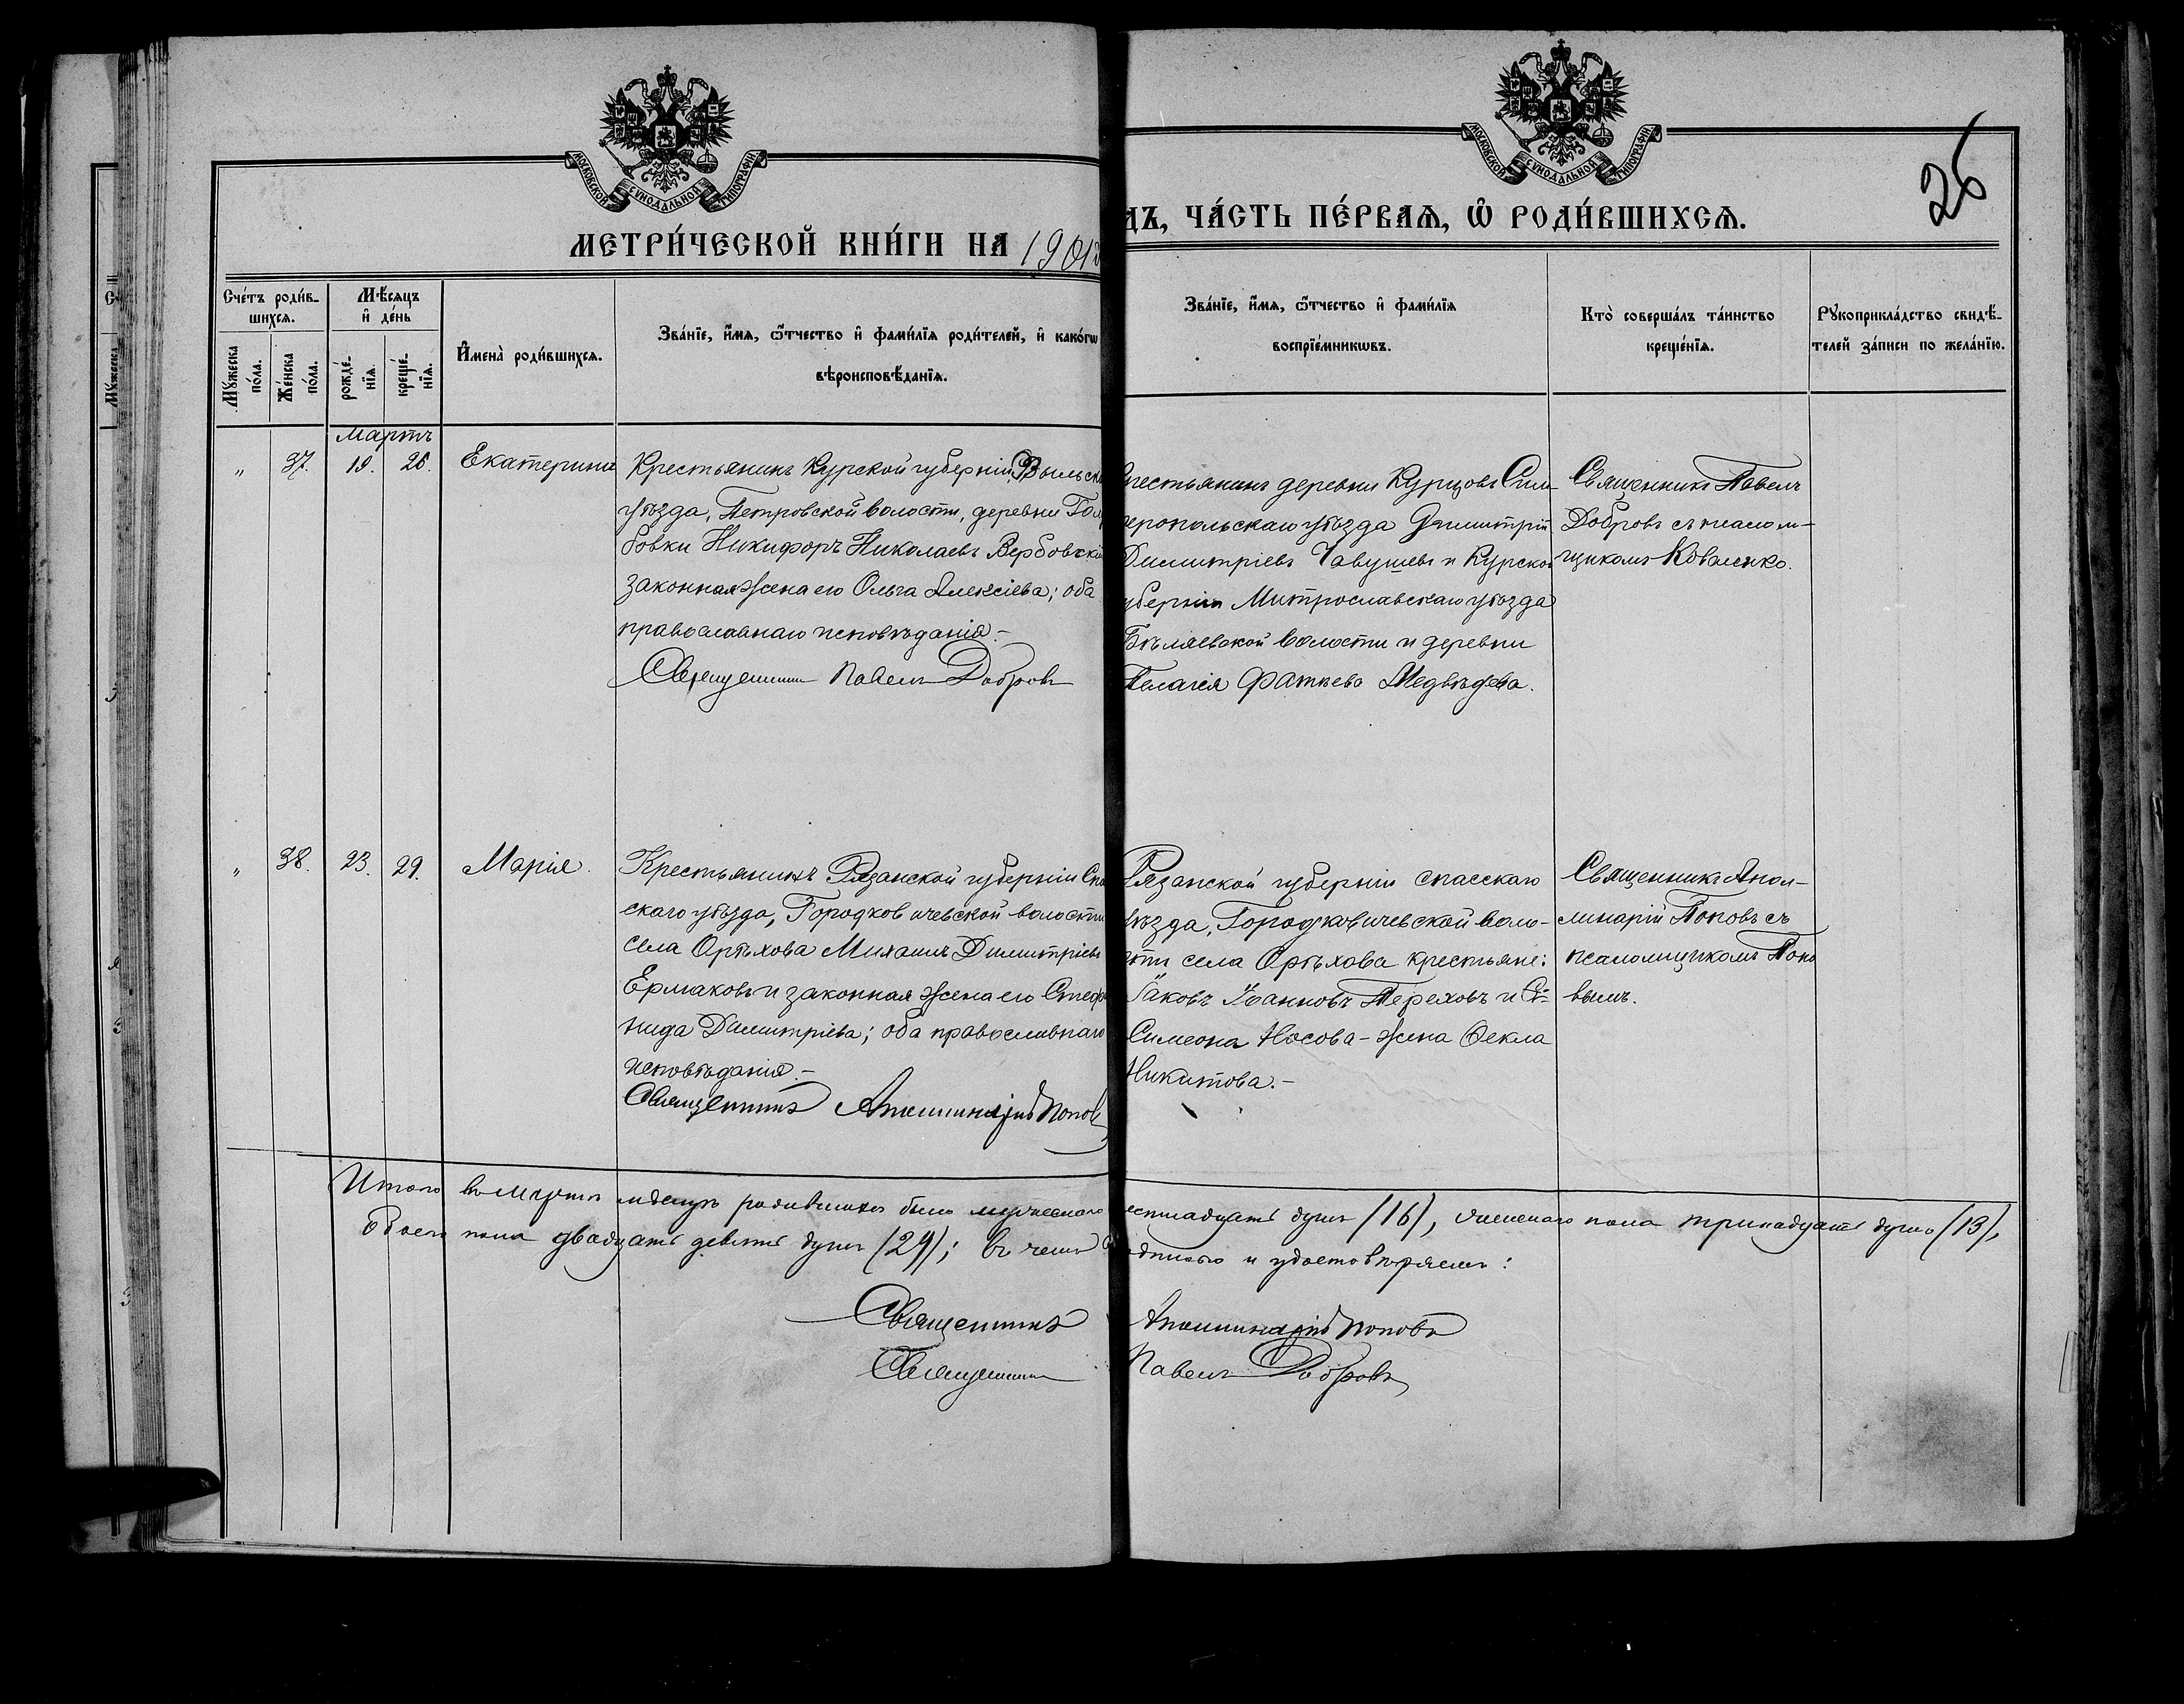 МОСКОВСКОЙ СѴНОДАЛЬНОЙ ТИПОГРАФІИ
МОСКОВСКОЙ СѴНОДАЛЬНОЙ ТИПОГРАФІИ
26
МЕТРИ́ЧЕСКОЙ КНИ́ГИ НА 1901
ДЪ, ЧА́СТЬ ПЕ́РВАѦ, Ѡ҆ РОДИ́ВШИХСѦ.
Сче́тъ роди́в-
шихсѧ.
Мꙋ́жеска
по́ла.
Же́нска
по́ла.
Мѣ́сѧцъ
и҆ де́нь
рожде́-
нїѧ.
креще́-
нїѧ.
И҆мена̀ роди́вшихсѧ.
Зва́нїе, и҆́мѧ, ѻ҆́тчество и҆ фами́лїѧ роди́телей, и҆ како́гѡ
вѣроисповѣ́данїѧ.
Зва́нїе, и҆́мѧ, ѻ҆́тчество и҆ фами́лїѧ
воспрїе́мникѡвъ.
Кто̀ соверша́лъ та́инство
креще́нїѧ.
Рꙋкоприкла́дство свидѣ́-
телей за́писи по жела́нїю.
Мартъ
" 37. 19. 26. Екатерина
Крестьянинъ Курской губерніи, Рыльск
уѣзда, Петровской волости, деревни Гол
бовки Никифоръ Николаевъ Вербовскій
законная жена его Ольга Алексіева; оба
православнаго исповѣданія.-
Священникъ Павелъ Добровъ
рестьянинъ деревни Курцовъ Сим-
феропольскаго уѣзда Димитрій
Димитріевъ Чавушевъ и Курской
уберніи Митрославскаго уѣзда
Бѣляевской волости и деревни
Пелагія Фатѣева Медвѣдева.
Священникъ Павелъ
Добровъ съ псалом-
щикомъ Коваленко.
" 38. 23. 29. Марія.
Крестьянинъ Рязанской губерніи Спа
скаго уѣзда, Городковичевской волости
села Орѣхова Михаилъ Димитріевъ
Ермаковъ и законная жена его Стефа
нида Димитріева; оба православнаго
исповѣданія.-
Священникъ Аполлинарій Поповъ
Рязанской губерніи Спасскаго
уѣзда, Городковичевской воло-
сти села Орѣхова крестьяне:
Іаковъ Іоанновъ Тереховъ и
Симеона Носова - жена Ѳекла
Никитова.-
Священникъ Апол-
линарій Поповъ съ
псаломщикомъ Попо
вымъ.
Итого въ Мартѣ мѣсяцѣ родившихся было мужескаго
естнадцать душъ (16), женскаго пола тринадцать душъ (13),
обоего пола двадцать девять душъ (29); въ чемъ
одписью и удостовѣряемъ:
Священникъ Аполлинарій Поповъ
Священникъ Павелъ Добровъ